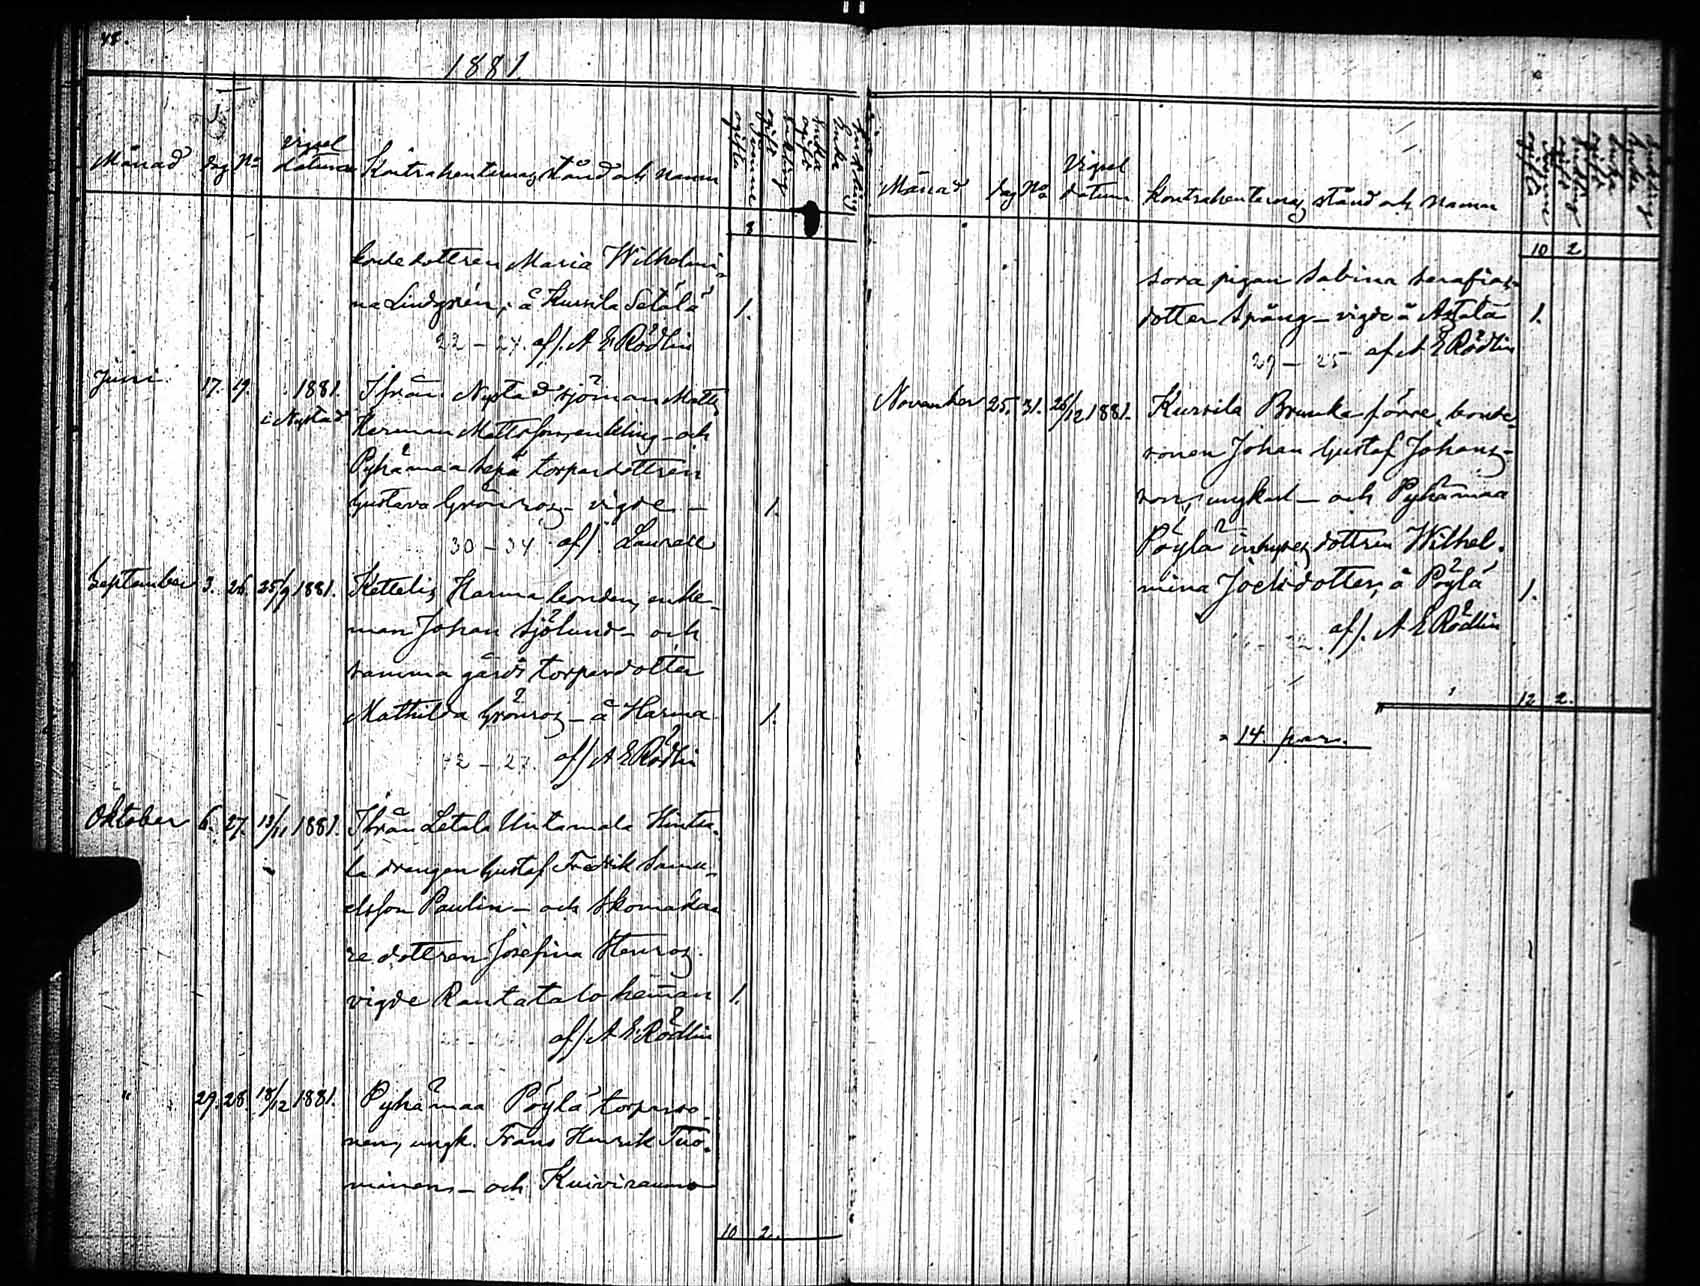 48.
1881.
Månad dag No Vigsel datum Kontrahenternas stånd och namn
8
bondedottren Maria Wilhelmi-
na Lindgrén, å Kursila Setälä 1.
22 – 24. af/. A E Rödlin
Juni 17. 19. 1881. Ifrån Nystad sjöman Matts
i Nystad Herman Mattsson, enkling – och
Pyhämaa Sepä torpardottren
Gustava Grönros – vigde – 1.
30 – 34 af/. Laurell
September 3. 26. 25/9 1881. Kettelis Harma bonden, enke-
man Johan Sjölund – och
samma gårds torpardotter
Mathilda Grönros – å Harma 1.
42 – 27. af/ A E Rödlin
Oktober 6. 27. 13/11 1881. Ifrån Letala Untamala Hintsa-
la drengen Gustaf Fredrik Samu-
elsson Paulin – och Skomaka-
re dottren Josefina Stenros
vigde Rantatalo heman 1.
af/. A E Rödlin
" 29. 28. 18/12 1881. Pyhämaa Pöylä torpareso-
nen, ungk. Frans Henrik Tuo-
minen, – och Kuivirauma
10 2.
Månad dag No Vigsel datum Kontrahenternas stånd och namn
10 2
sora pigan Sabina Serafias-
dotter Spång – vigde å 1.
29 – 25 af A E Rödlin
November 25. 31. 26/12 1881. Kursila Brunka förre bonde-
sonen Johan Gustaf Johans-
son, ungkarl – och Pyhämaa
Pöylä inhyses dottren Wilhel-
mina Jockdotter, å Pöylä 1.
af/. A E Rödlin
12 2.
14. par.